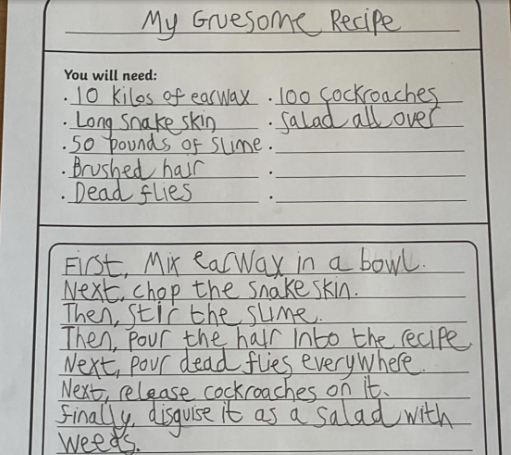 My Gruesome Recipe
You will need:
· 10 kilos of earwax
· Long snake skin
· 50 pounds of slime
· Brushed hair
· Dead flies
· 100 cockroaches
· Salad all over
First, Mix earwax in a bowl.
Next, chop the snake skin.
Then, stir the slime.
Then, pour the hair into the recipe
Next, pour dead flies everywhere.
Next, release cockroaches on it.
Finally, disguise it as a salad with
weeds.